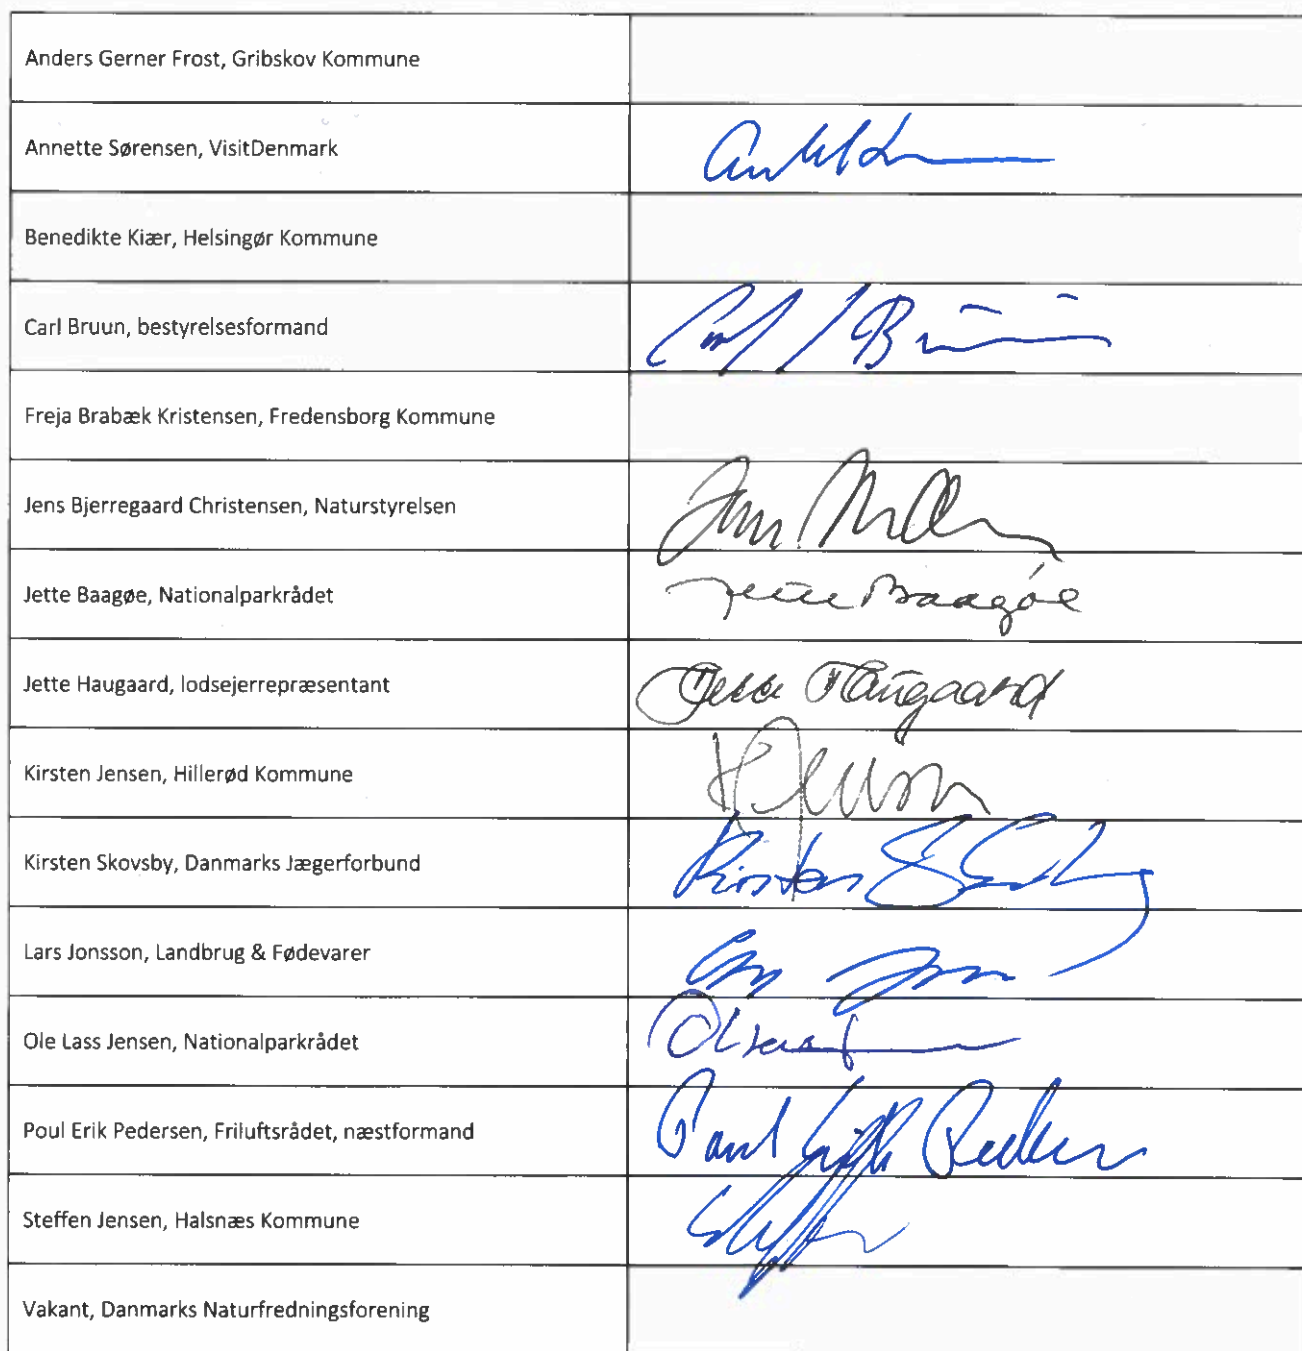 Anders Gerner Frost, Gribskov Kommune
Annette Sørensen, VisitDenmark
Benedikte Kiær, Helsingør Kommune
Carl Bruun, bestyrelsesformand
Freja Brabæk Kristensen, Fredensborg Kommune
Jens Bjerregaard Christensen, Naturstyrelsen
Jette Baagøe, Nationalparkrådet
Jette Baagøe
Jette Haugaard, lodsejerrepræsentant
Jette Haugaard
Kirsten Jensen, Hillerød Kommune
KJensen
Kirsten Skovsby, Danmarks Jægerforbund
Kirsten
Lars Jonsson, Landbrug & Fødevarer
Ole Lass Jensen, Nationalparkrådet
Poul Erik Pedersen, Friluftsrådet, næstformand
Poul Erik Pedersen
Steffen Jensen, Halsnæs Kommune
Vakant, Danmarks Naturfredningsforening